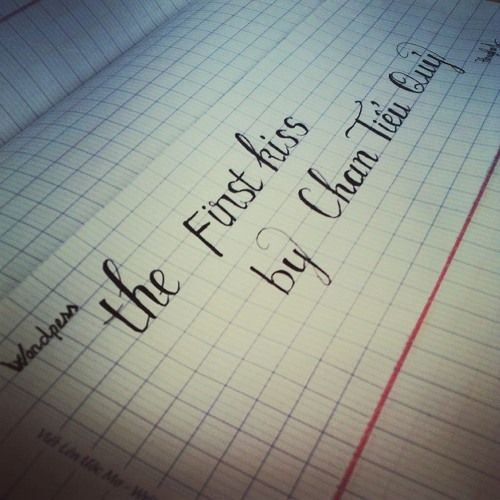 Wordpess
the First kiss
by Chan Tiểu Quỷ
Viết Lên Ước Mơ -